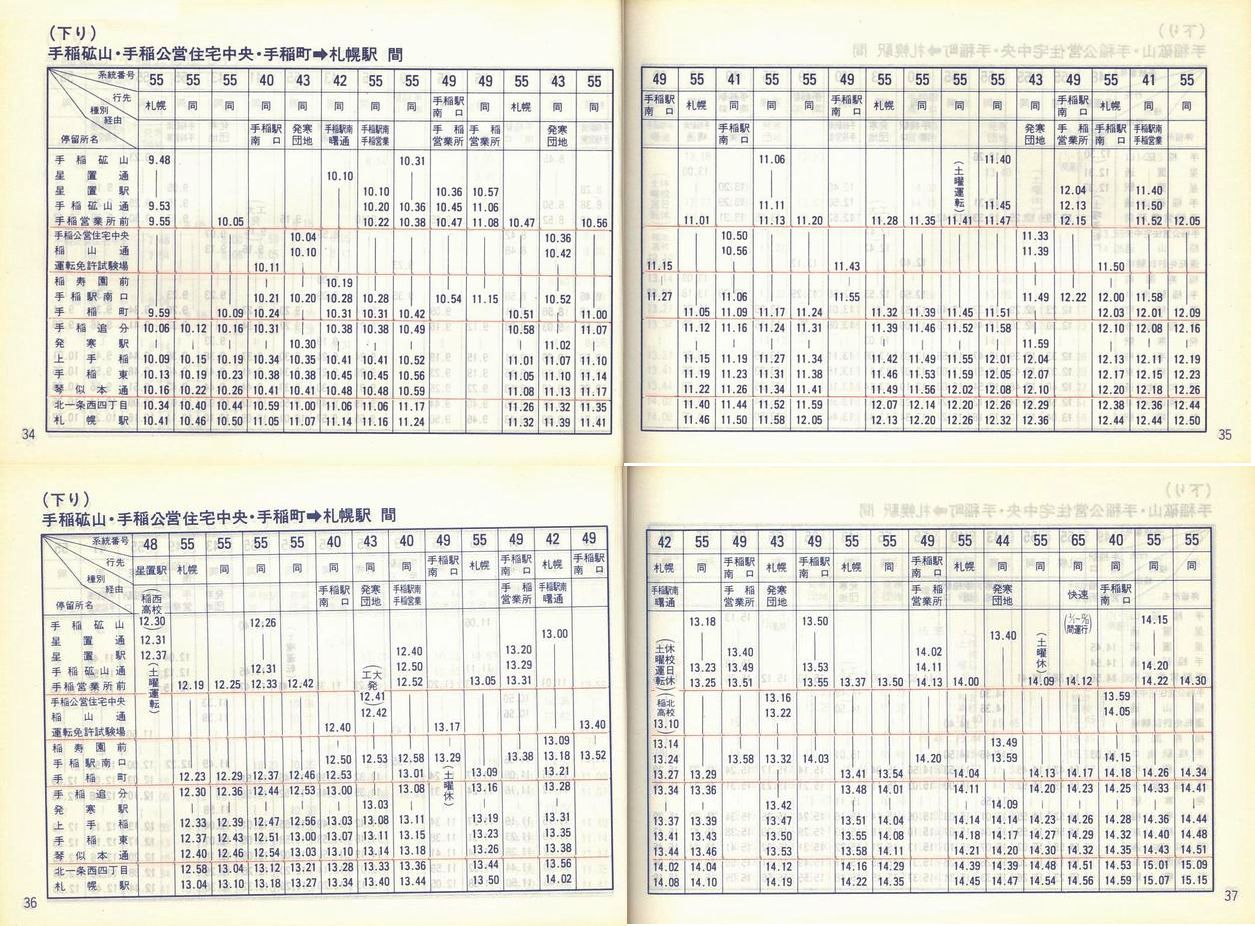 （下り）
手稲砿山・手稲公営住宅中央・手稲町➡札幌駅 間
系統番号 55 55 55 40 43 42 55 55 49 49 55 43 55
行先 札幌 同 同 同 同 同 同 同 手稲駅南口 同 札幌 同 同
種別 経由 手稲駅南口 発寒団地 手稲駅南曙通 手稲駅南手稲営業 手稲営業所 手稲営業所 発寒団地
停留所名
手稲砿山 9.48 10.31
星置通 10.10
星置駅 10.10 10.36 10.57
手稲砿山通 9.53 10.20 10.36 10.45 11.06
手稲営業所前 9.55 10.05 10.22 10.38 10.47 11.08 10.47 10.56
手稲公営住宅中央 10.04 10.36
稲山通 10.10 10.42
運転免許試験場 10.11
稲寿園前 10.19
手稲駅南口 10.21 10.20 10.28 10.28 10.54 11.15 10.52
手稲町 9.59 10.09 10.24 10.31 10.31 10.42 10.51 11.00
手稲追分 10.06 10.12 10.16 10.31 10.38 10.38 10.49 10.58 11.07
発寒駅 10.30 11.02
上手稲 10.09 10.15 10.19 10.34 10.35 10.41 10.41 10.52 11.01 11.07 11.10
手稲東 10.13 10.19 10.23 10.38 10.38 10.45 10.45 10.56 11.05 11.10 11.14
琴似本通 10.16 10.22 10.26 10.41 10.41 10.48 10.48 10.59 11.08 11.13 11.17
北一条西四丁目 10.34 10.40 10.44 10.59 11.00 11.06 11.06 11.17 11.26 11.32 11.35
札幌駅 10.41 10.46 10.50 11.05 11.07 11.14 11.16 11.24 11.32 11.39 11.41
34
49 55 41 55 55 49 55 55 55 55 43 49 55 41 55
手稲駅南口 札幌 同 同 同 手稲駅南口 札幌 同 同 同 同 手稲駅南口 札幌 同 同
手稲駅南口 発寒団地 手稲営業所 手稲駅南口 手稲駅南手稲営業
11.06 （土曜運転） 11.40
12.04 11.40
11.11 11.45 12.13 11.50
11.01 11.13 11.20 11.28 11.35 11.41 11.47 12.15 11.52 12.05
10.50 11.33
10.56 11.39
11.15 11.43 11.50
11.27 11.06 11.55 11.49 12.22 12.00 11.58
11.05 11.09 11.17 11.24 11.32 11.39 11.45 11.51 12.03 12.01 12.09
11.12 11.16 11.24 11.31 11.39 11.46 11.52 11.58 12.10 12.08 12.16
11.59
11.15 11.19 11.27 11.34 11.42 11.49 11.55 12.01 12.04 12.13 12.11 12.19
11.19 11.23 11.31 11.38 11.46 11.53 11.59 12.05 12.07 12.17 12.15 12.23
11.22 11.26 11.34 11.41 11.49 11.56 12.02 12.08 12.10 12.20 12.18 12.26
11.40 11.44 11.52 11.59 12.07 12.14 12.20 12.26 12.29 12.38 12.36 12.44
11.46 11.50 11.58 12.05 12.13 12.20 12.26 12.32 12.36 12.44 12.44 12.50
35
（下り）
手稲砿山・手稲公営住宅中央・手稲町➡札幌駅 間
系統番号 48 55 55 55 55 40 43 40 49 55 49 42 49
行先 星置駅 札幌 同 同 同 同 同 同 手稲駅南口 札幌 手稲駅南口 札幌 手稲駅南口
種別 経由 （稲西高校） 手稲駅南口 発寒団地 手稲駅南手稲営業 手稲営業所 手稲駅南曙通
停留所名
手稲砿山 12.30 12.26
星置通 12.31 13.00
星置駅 12.37 12.40 13.20
手稲砿山通 （土曜運転） 12.31 （工大発） 12.50 13.29
手稲営業所前 12.19 12.25 12.33 12.42 12.52 13.05 13.31
手稲公営住宅中央 12.41
稲山通 12.42
運転免許試験場 12.40 13.17 13.40
稲寿園前 13.09
手稲駅南口 12.50 12.53 12.58 13.29 13.38 13.18 13.52
手稲町 12.23 12.29 12.37 12.46 12.53 13.01 （土曜休） 13.09 13.21
手稲追分 12.30 12.36 12.44 12.53 13.00 13.08 13.16 13.28
発寒駅 13.03
上手稲 12.33 12.39 12.47 12.56 13.03 13.08 13.11 13.19 13.31
手稲東 12.37 12.43 12.51 13.00 13.07 13.11 13.15 13.23 13.35
琴似本通 12.40 12.46 12.54 13.03 13.10 13.14 13.18 13.26 13.38
北一条西四丁目 12.58 13.04 13.12 13.21 13.28 13.33 13.36 13.44 13.56
札幌駅 13.04 13.10 13.18 13.27 13.34 13.40 13.44 13 50 14.02
36
42 55 49 43 49 55 55 49 55 44 55 65 40 55 55
札幌 同 手稲駅南口 札幌 手稲駅南口 札幌 同 手稲駅南口 札幌 同 同 同 同 同 同
手稲駅南曙通 手稲営業所 発寒団地 手稲営業所 発寒団地 快速 手稲駅南口
13.18 13.50 間運行） 14.15
13.40 （土曜休）
13.40 14.02
13.23 13.49 13.53 14.11 14.20
13.25 13.51 13.55 13.37 13.50 14.13 14.00 14.09 14.12 14.22 14.30
（稲北高校） 13.16 13.59
13.22 14.05
13.10
13.14 13.49
13.24 13.58 13.32 14.03 14.20 13.59 14.15
13.27 13.29 13.41 13.54 14.04 14.13 14.17 14.18 14.26 14.34
13.34 13.36 13.48 14.01 14.11 14.20 14.23 14.25 14.33 14.41
13.42 14.09
13.37 13.39 13.47 13.51 14.04 14.14 14.14 14.23 14.26 14.28 14.36 14.44
13.41 13.43 13.50 13.55 14.08 14.18 14.17 14.27 14.29 14.32 14.40 14.48
13.44 13.46 13.53 13.58 14.11 14.21 14.20 14.30 14.32 14.35 14.43 14.51
14.02 14.04 14.12 14.16 14.29 14.39 14.39 14.48 14.51 14.53 15.01 15.09
14.08 14.10 14.19 14.22 14.35 14.45 14.47 14.54 14.56 14.59 15.07 15.15
37